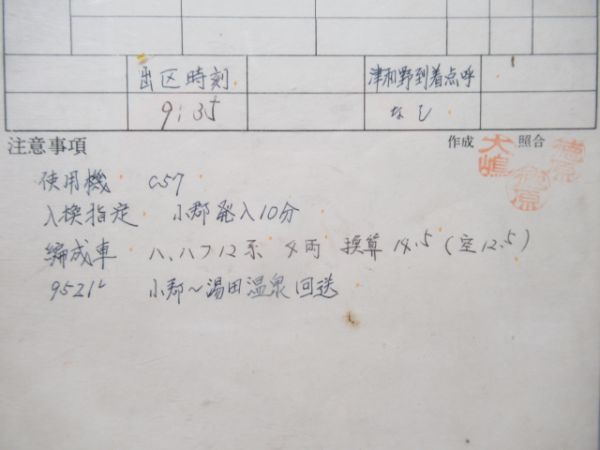 出区時刻 津和野到着点呼
9:35 なし
注意事項 作成 大嶋 照合
使用機 C57
入換指定 小郡発入10分
編成車 ハ、ハフ12系 4両 換算14.5(空12.5)
9521レ 小郡～湯田温泉回送